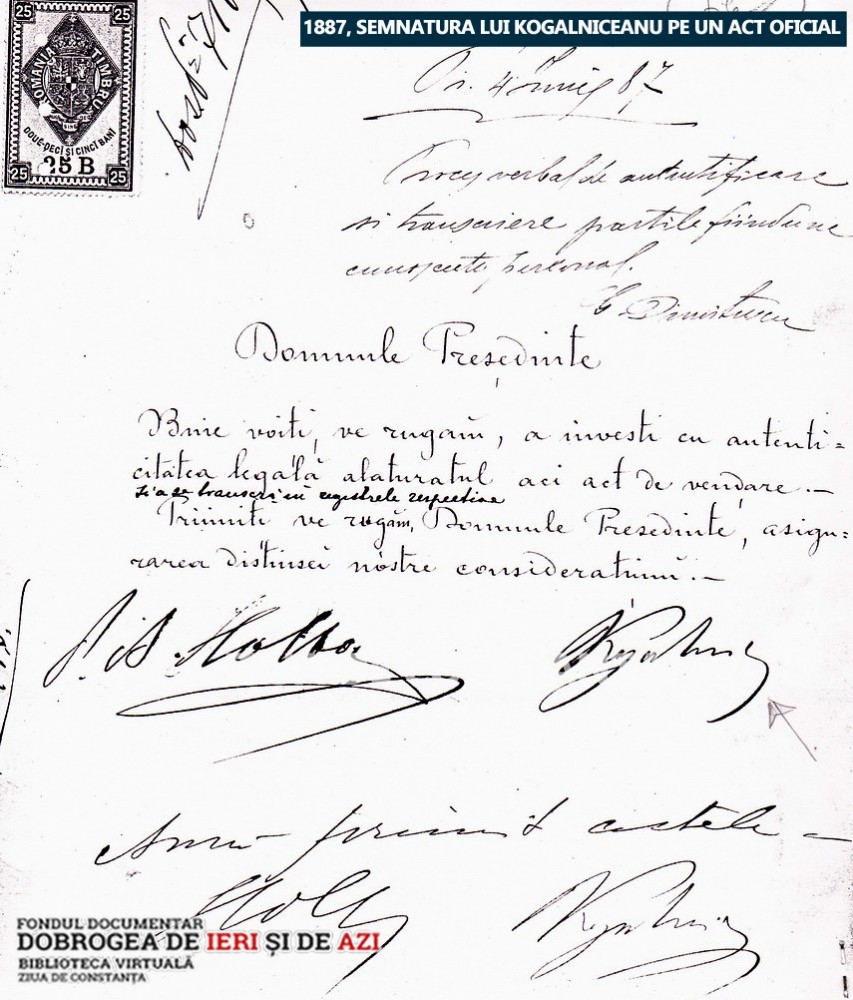 1887, SEMNATURA LUI KOGALNICEANU PE UN ACT OFICIAL
25 25
ROMANIA TIMBRU
DOUE-DECI ȘI CINCĬ BANI
25 B
25 25
4 Iunie 87
Proces verbal de autentificare
si transcriere partile fiindu ne
cunoscute personal.
Domnule Președinte
Bine voiti, ve rugam, a investi cu autenti=
citatea legală alaturatul aci act de vendare.—
si a se transcri in registrele respective
Priimiti ve rugăm, Domnule Presedinte, asigu=
rarea distinsei nóstre consideratiuni.—
Am primit actele —
FONDUL DOCUMENTAR
DOBROGEA DE IERI ȘI DE AZI
BIBLIOTECA VIRTUALĂ
ZIUA DE CONSTANȚA